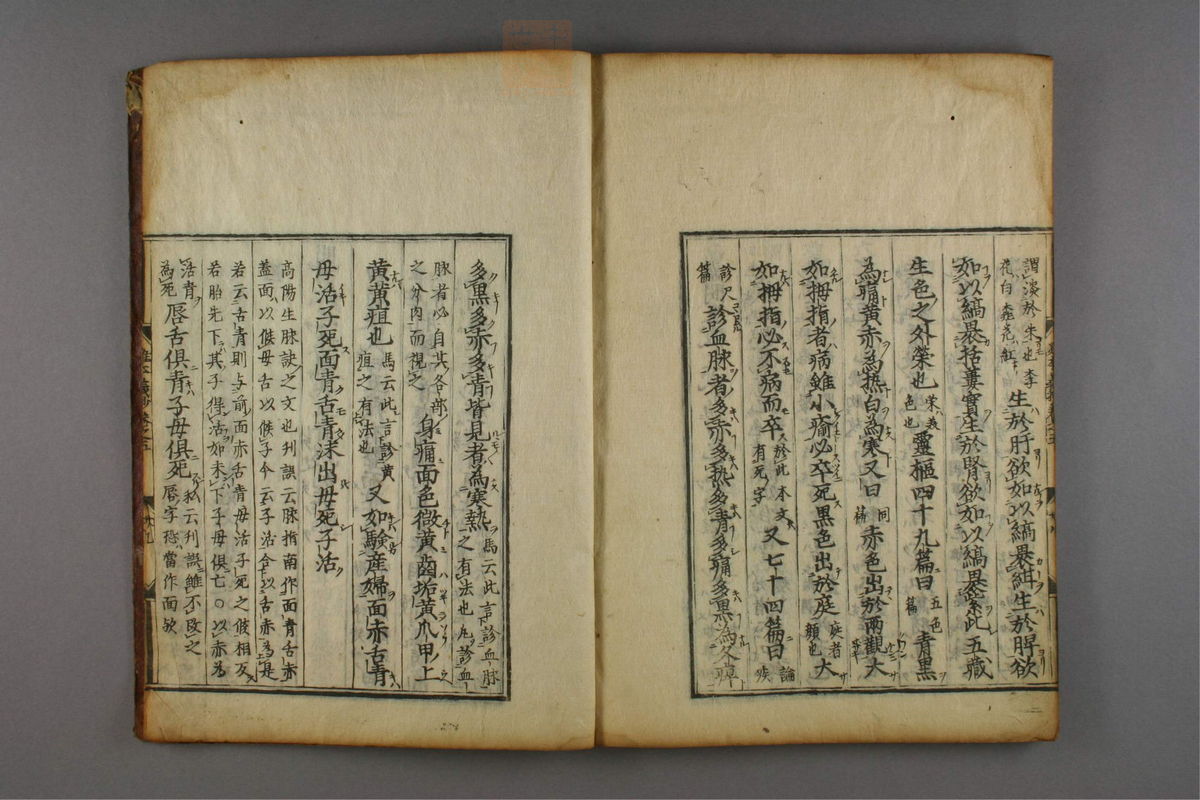 謂淡於朱也李
花白桃花紅 生於肝欲如以縞裹紺生於脾欲
如以縞裹括蔞實生於腎欲如以縞裹紫此五職
生色之外榮也 榮教
色也 靈樞四十九篇曰 五色
篇 青黒
為痛黄赤為热白為寒又曰 同
篇 赤色出於兩觀大
如拇指者病雖小瘉必卒死黒色出於庭 庭者
顔也 大
如拇指必不病而卒 於此本文
有死字 又七十四篇曰 論
疾
診尺
篇 診血脉者多赤多热多青多痛多黒為久痺
多黒多赤多青皆見者為寒熱 馬云此言診血脉
之有法也凡診血
脉者必自其各部
之分肉而視之 身痛面色微黄齒垢黄爪甲上
黄黄疸也 馬云此言診黄
疸之有法也 又如験産婦面赤舌青
母活子死面青舌青沫出母死子活
高陽生脉訣之文也刋誤云脉指南作面青舌赤
蓋面以候母舌以候子今云子活合以舌赤為是
若云舌青則与前面赤舌青母活子死之候相反
若胎先下其子得活如未下子母俱亡○以赤為
活青
為死 唇舌俱青子母俱死 云刋誤雖不改之
唇字恐當作面欤